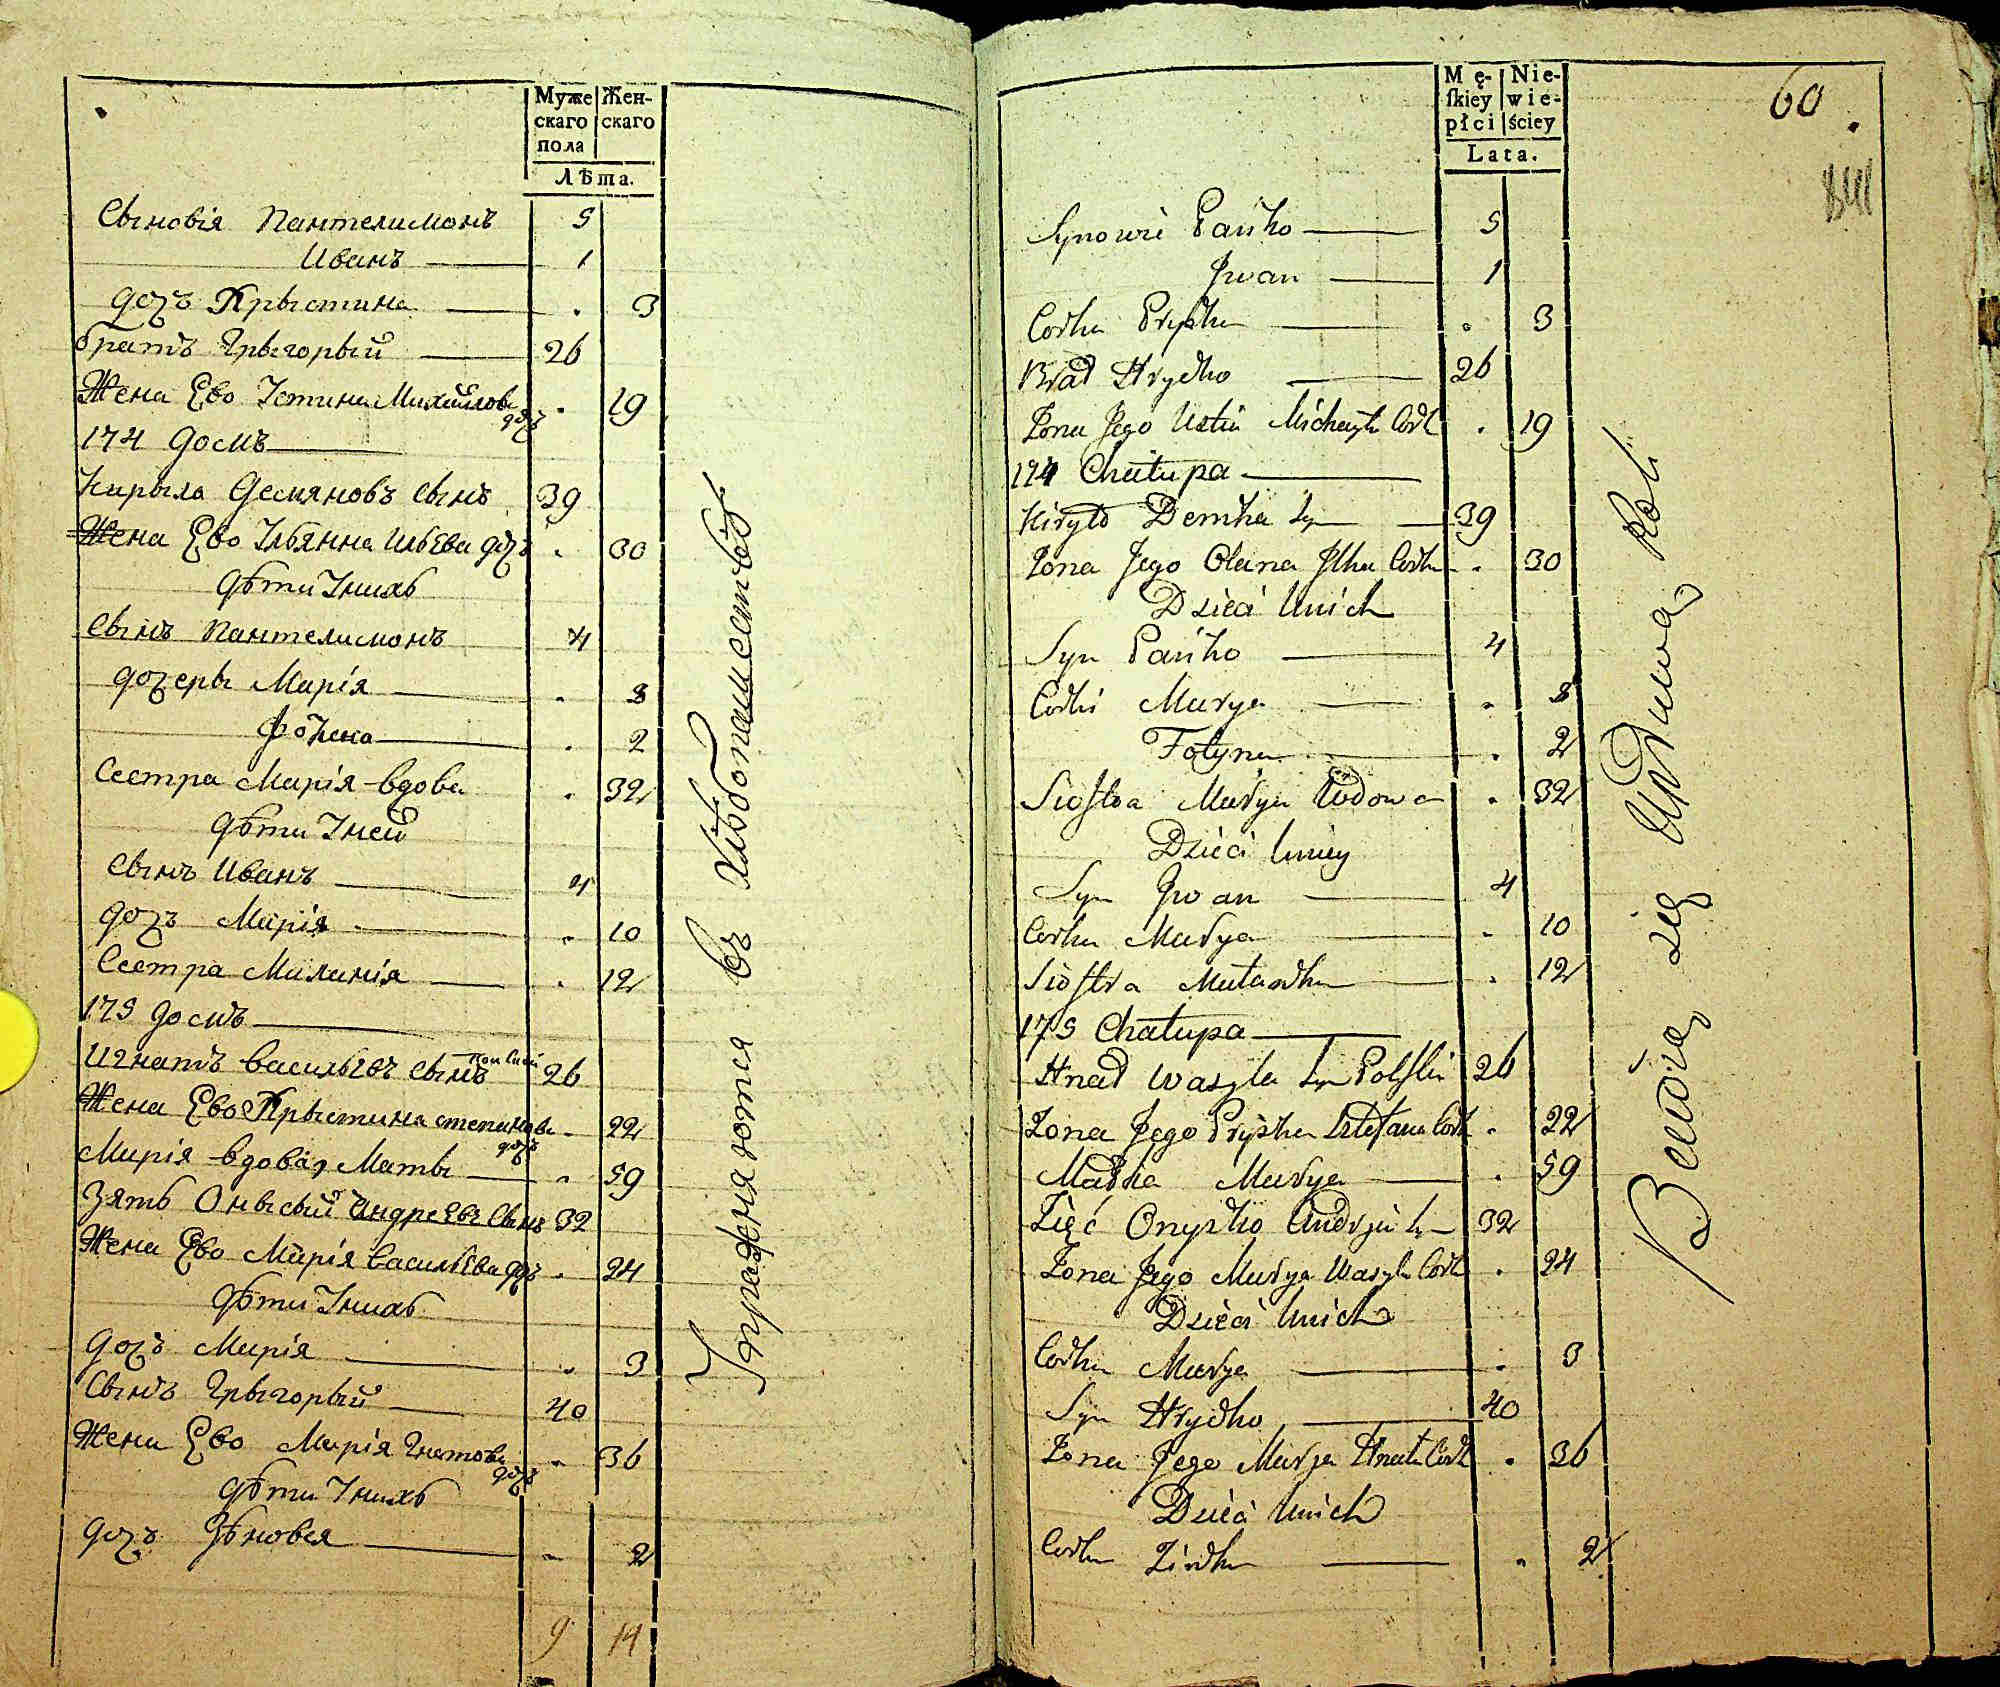 Муже Жен-
скаго скаго
пола
Лѣта.
Сынов​ія Пантелимонъ 5
Иванъ 1
дочъ Крыстина . 3
братъ Грыгорый 26
Жена Ево Устина Михайлова дочъ . 19
174 домъ
Кирыла Демяновъ сынъ 39
Жена Ево Ульянна Ильева дочъ . 30
дѣти Унихъ
Сынъ Пантелимонъ 4
дочеры Марія . 8
Фотена . 2
Сестра Марія вдова . 32
дѣти Уней
сынъ Иванъ 4
дочъ Марія . 10
Сестра Миланія . 12
175 домъ
Игнатъ Васильевъ сынъ 26
Жена Ево Крыстина степанова дочъ . 22
Марія вдова, Мать . 59
Зять Онысый Андреевъ сынъ 32
Жена Ево Марія Васильева дочъ . 24
дѣти Унихъ
дочъ Марія . 3
Сынъ Грыгорый 40
Жена Ево Марія Гнатова дочъ . 36
дѣти Унихъ
дочъ Зѣновея . 2
9 14
Упражняются въ хлѣбопашествѣ
Mę- Nie-
ſkiey wie-
płci ściey
Lata.
60.
Synowie Pańko 5
Jwan 1
Corka Pryska . 3
Brat Hryćko 26
Zona Jego Ustia Michayła Cork . 19
174 Chałupa
Kiryło Demka Syn 39
Zona Jego Olana Jlka Corka . 30
Dzieci Unich
Syn Pańko 4
Corki Marya . 8
Fotyna . 2
Siostra Marya Wdowa . 32
Dzieci Uniey
Syn Jwan 4
Corka Marya . 10
Siostra Małaszka . 12
175 Chałupa
Hnat Wasyla Syn Polski 26
Zona Jego Pryska Stefana Cork . 22
Matka Marya . 59
Zięć Onyszko Andryia Syn 32
Zona Jego Marya Wasyla Cork . 24
Dzieci Unich
Corka Marya . 3
Syn Hryćko 40
Zona Jego Marya Hnata Cork . 36
Dzieci Unich
Corka Zinka . 2